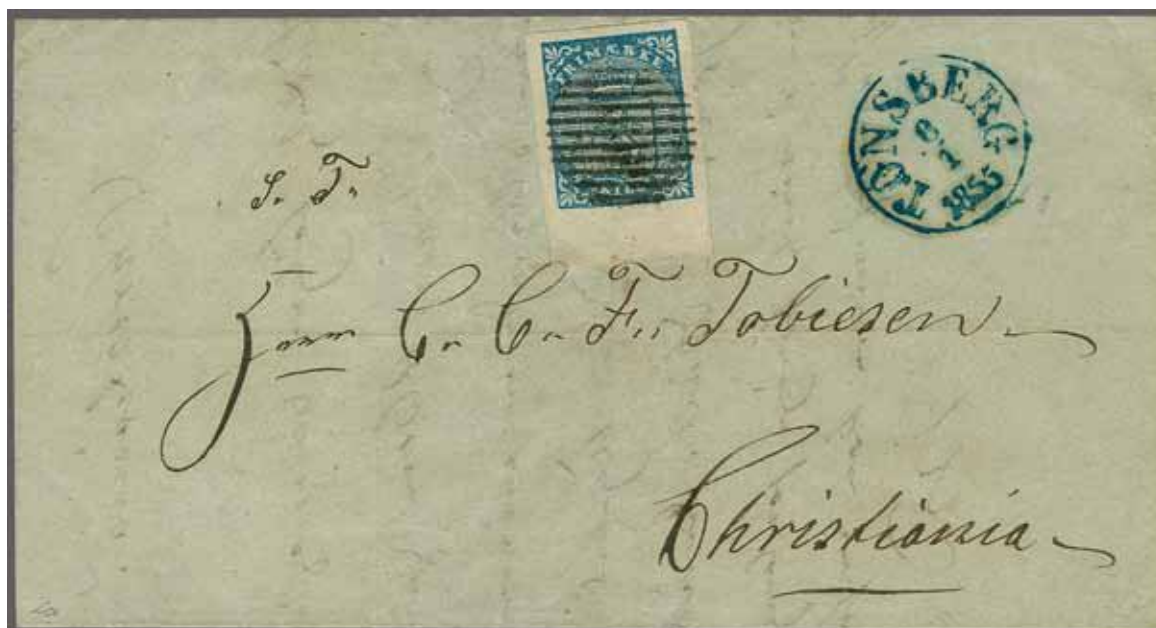 FRIMÆRKE
TØNSBERG
1855
S. T.
Herr C. C. F. Tobiesen
Christiania